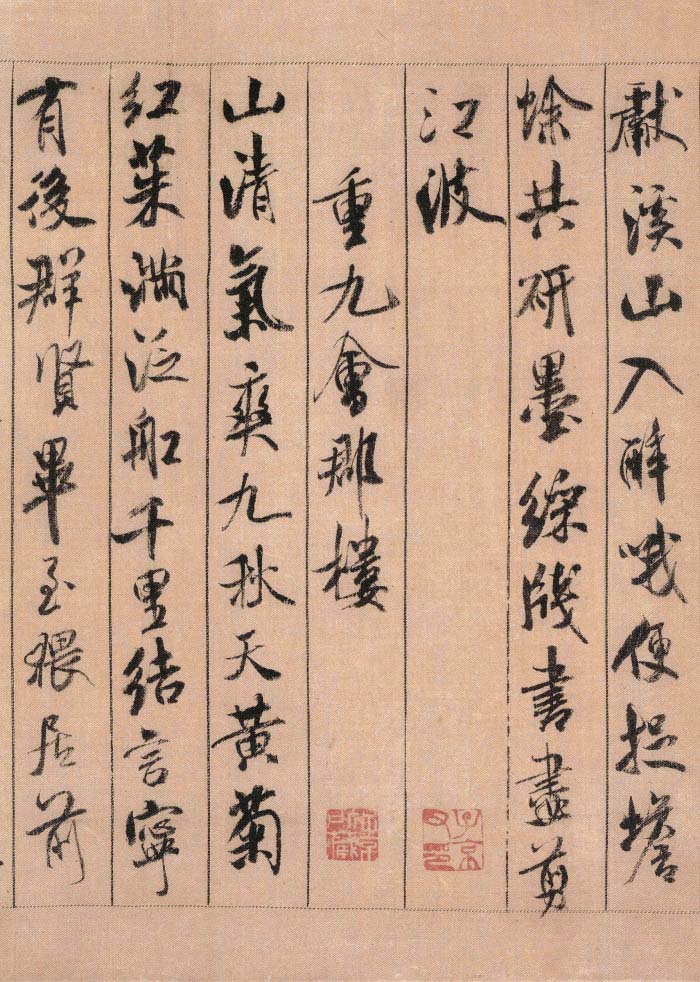 獻溪山入醉哦便捉蟾
蜍共研墨綵牋書盡剪
江波
重九會郡樓
山清氣爽九秋天黃菊
紅茱滿泛舡千里結言寧
有後群賢畢至猥居前